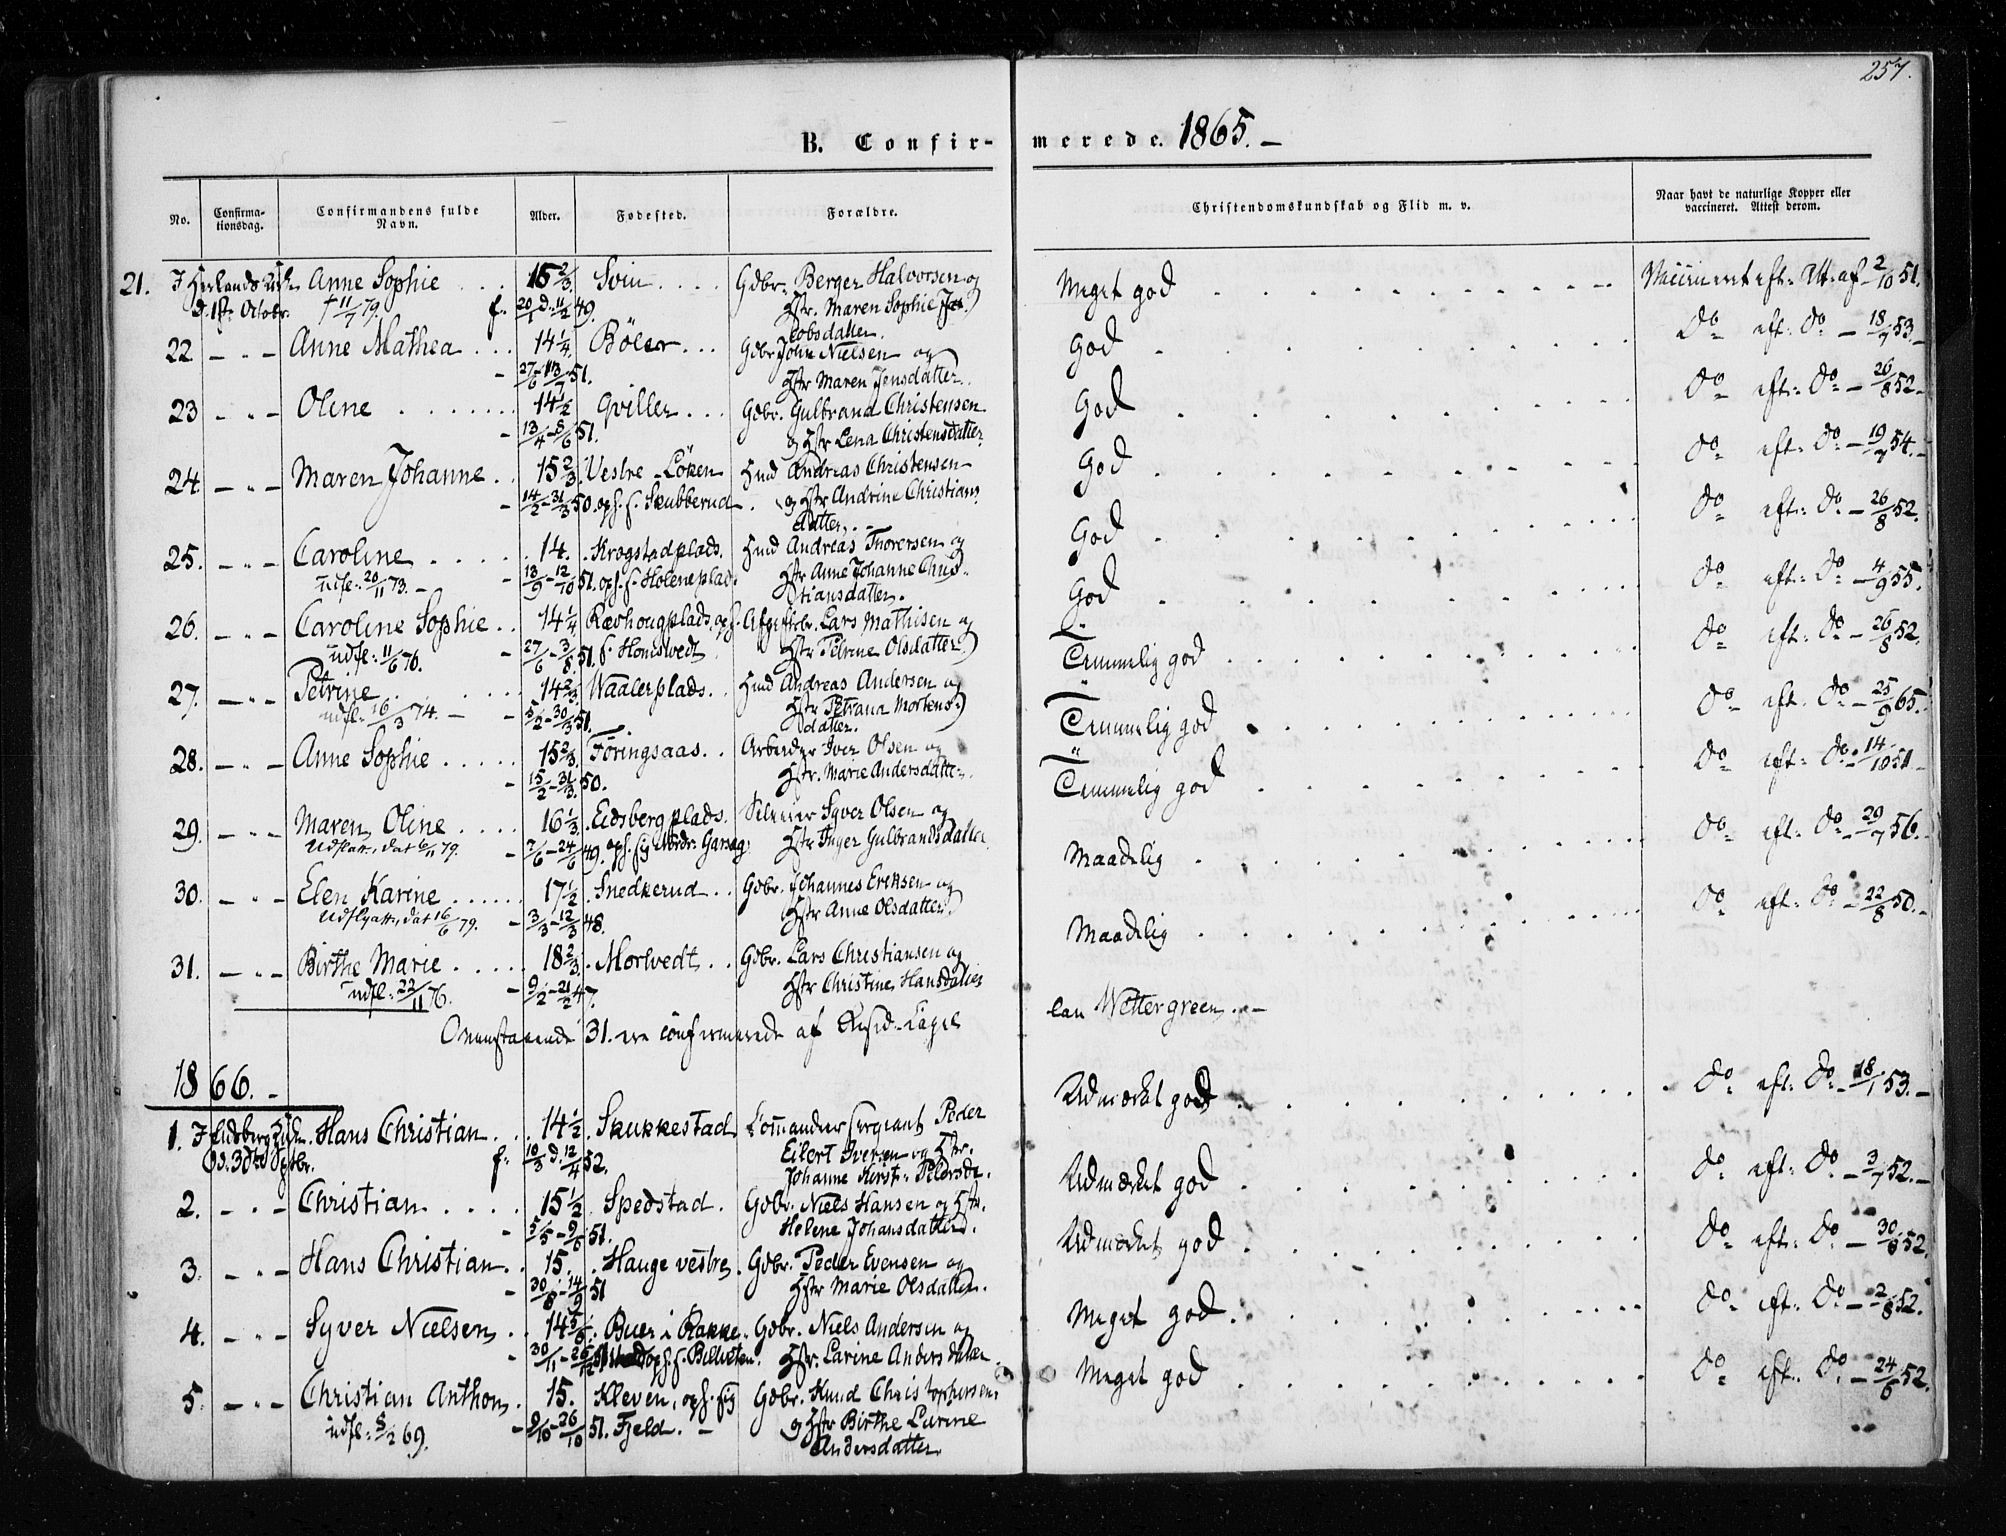 257.
B. Confirmerede. 1865. –
No. Confirmationsdag. Confirmandens fulde Navn. Alder. Fødested. Forældre. Christendomskundskab og Flid m. v. Naar havt de naturlige Kopper eller vaccineret. Attest derom.
21. I Herlands Kirke Anne Sophie . . . 15 2/3 Svin . . . . Gdbr. Berger Halvorsen og Meget god Vaccineret eft: Att: af 2/10 51.
d. 1ste Octobr. † 11/7 79. f. 20/1 d. 11/2 49. Hstr. Maren Sophie Jacobsdatter.
22 – „ – Anne Mathea . . . 14 1/4. Böler . . . Gdbr John Nielsen og God do eft: do – 18/7 53. –
– 27/6 – 13/7 51. Hstr Maren Jensdatter.
23 – „ – Oline . . . . . . . 14 1/2 Qviller . . . Gdbr. Gulbrand Christensen God do eft: do – 26/8 52 –
– 13/4 – 8/6 51. og Hstr Lena Christensdatter
24. – „ – Maren Johanne . . 15 2/3. Vestre Löken Hmd Andreas Christensen God do eft: do – 19/7 54. –
– 14/2 – 31/3 50. oph. f. Skubberud . og Hstr Andrine Christians
datter. –
25. – „ – Caroline . . . . . 14. . Krogstadplads. Hmd Andreas Thorersen og God do eft: do – 26/8 52.
udfl: 20/11 73. – – 13/9 – 12/10 51. oph. f. Holeneplad. Hstr Anne Johanne Chris-
tiansdatter.
26. – „ – Caroline Sophie . . 14 1/4. Rævhougplads, oph. Afgiftsbr. Lars Mathisen og God do eft: do – 4/9 55.
udfl: 11/6 76. – 27/6 – 3/8 51. f. Homstvedt Hstr Petrine Olsdatter
27. – „ – Petrine . . . . . 14 2/3. Waalerplads. . Hmd Andreas Andersen og Temmelig god do eft: do – 26/8 52.
udfl: 16/3 74. – – 5/2 – 30/3 51. Hstr Petrana Mortens-
datter.
28. – „ – Anne Sophie . . . . . 15 2/3. Föringsaas. . Arbeider Iver Olsen og Temmelig god do eft: do – 25/9 65.
– 15/2 – 31/3 50. Hstr. Marie Andersdatter.
29. – „ – Maren Oline . . . . 16 1/3 . Eidsbergplads. Selveier Syver Olsen og Temmelig god do eft: do – 14/10 51 –
Udflatt. dat 6/11 79. – 7/6 – 24/6 49. oph. sig Nordr: Garseg. Hstr Inger Gulbrandsdatter.
30. – „ – Elen Karine . . . . . . 17 1/2 . Snedkerud . . Gdbr. Johannes Eriksen og Maadelig do eft: do – 29/7 56. –
Udflyatt. dat 16/6 79. – 3/3 – 12/3 48. Hstr Anne Olsdatter.
31. – „ – Birthe Marie . . . . . 18 2/3 . Morlvedt . . Gdbr. Lars Christiansen og Maadelig do eft: do – 22/8 50. –
udfl: 22/11 76. – 9/2 – 21/2 47. Hstr Christine Hansdatter
Ovenstaaende 31. ere confirmerede af Resid: Capel
lan Wettergreen. –
1866. –
1. I Eidsberg Kirke Hans Christian . . . 14 1/2. Skukkestad. Commandeersergeant Peder Udmærket god do eft: do – 18/1 53. –
d. 30te Septbr. f. 10/3 d. 12/4 52. Eilert Iversen og Hstr.
Johanne Kirst: Pedersdr.
2. – „ – Christian . . . . . 15 1/2 . Spedstad . Gdbr. Niels Hansen og Hstr. Udmærket god do eft: do – 3/7 52. –
– 5/5 – 9/6 51. Helene Johansdatter.
3. – „ – Hans Christian . . 15. . Hauge vestre . Gdbr. Peder Evensen og Udmærket god do eft: do – 30/8 52.
– 30/8 – 14/9 51 Hstr Marie Olsdatter.
4. – „ – Syver Nielsen . . 14 5/6 . Buer i Rakke . Gdbr. Niels Andersen og Meget god do eft: do – 2/8 52.
– 30/11 – 26/12 51 oph. f. Hstr. Larine Andersdatter.
5. – „ – Christian Anthon . 15. Kleven, oph. sig Gdbr. Knud Christophersen Meget god do eft: do – 24/6 52.
udfl: 8/2 69. – 9/10 – 26/10 51. Fjeld. – og Hstr Birthe Larine
Andersdatter